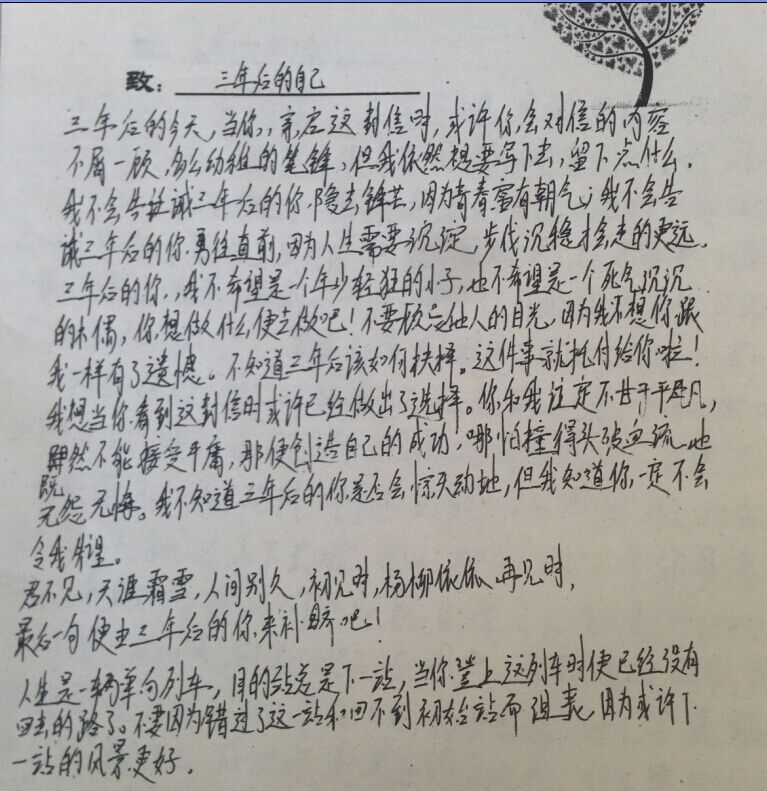 致：三年后的自己
三年后的今天，当你，弃启这封信时，或许你会对信的内容
不屑一顾，多么幼稚的笔锋，但我依然想要写下去，留下点什么。
我不会告诫三年后的你隐去锋芒，因为青春富有朝气；我不会告
诫三年后的你勇往直前，因为人生需要沉淀，步伐沉稳才会走的更远。
三年后的你，我不希望是一个年少轻狂的小子，也不希望是一个死气沉沉
的木偶，你想做什么便去做吧！不要顾忌他人的目光，因为我不想你跟
我一样有了遗憾。不知道三年后该如何抉择。这件事就托付给你啦！
我想当你看到这封信时或许已经做出了选择。你和我注定不甘于平凡，
既然不能接受平庸，那便创造自己的成功，哪怕撞得头破血流也
无怨无悔。我不知道三年后的你是否会惊天动地，但我知道你一定不会
令我失望。
君不见，天涯霜雪，人间别久，初见时，杨柳依依，再见时，
最后一句便由三年后的你来补齐吧！
人生是一辆单向列车，目的站总是下一站，当你登上这列车时便已经没有
回去的路了。不要因为错过了这一站和回不到初始站而沮丧，因为或许下
一站的风景更好。